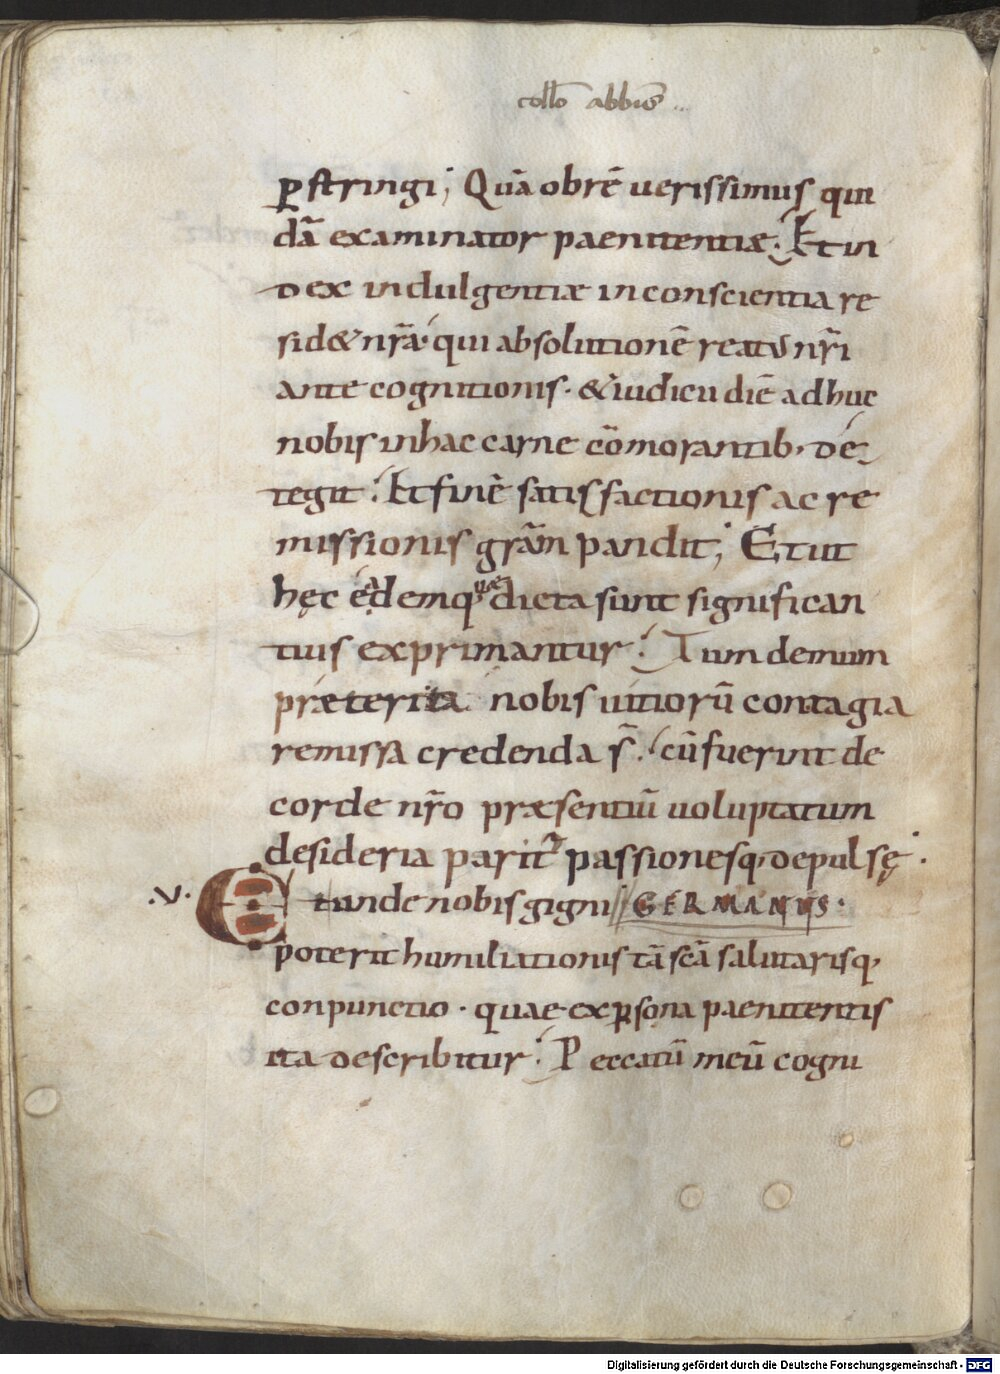 collo abbis
ꝑstringi; Quā obrē uerissimus qui
dā examinator paenitentiæ. Et in
dex indulgentiæ inconscientia re
sid& nr̄a. qui absolutionē reatus nr̄i
ante cognitionis. & iudicii diē adhuc
nobis inhac carne cōmorantib; de
tegit. Et finē satisfactionis ac re
missionis grām pandit; Et ut
hęc eadem quæ dicta sunt significan
tius exprimantur. Tum demum
præterita nobis uitiorū contagia
remissa credenda s̄. cū fuerint de
corde nr̄o præsentiū uoluptatum
desideria parit̄ passionesq; depulsę.
.V. E t unde nobis gigni GERMANUS.
poterit humiliationis tā scā salutarisq;
conpunctio. quae ex ꝑsona paenitentis
ita describitur. Peccatū meū cogni
Digitalisierung gefördert durch die Deutsche Forschungsgemeinschaft - DFG